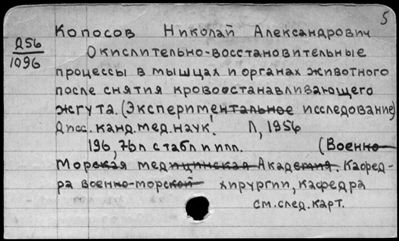 5
Колосов Николай Александрович
Д56
1096
Окислительно-восстановительные
процессы в мышцах и органах животного
после снятия кровоостанавливающего
жгута. (Экспериментальное исследование)
Дисс. канд. мед. наук. Л, 1956
196, 76л с табл и илл. (Военно-
Морская медицинская Академия. Кафед-
ра военно-морской хирургии, кафедра
см. след. карт.